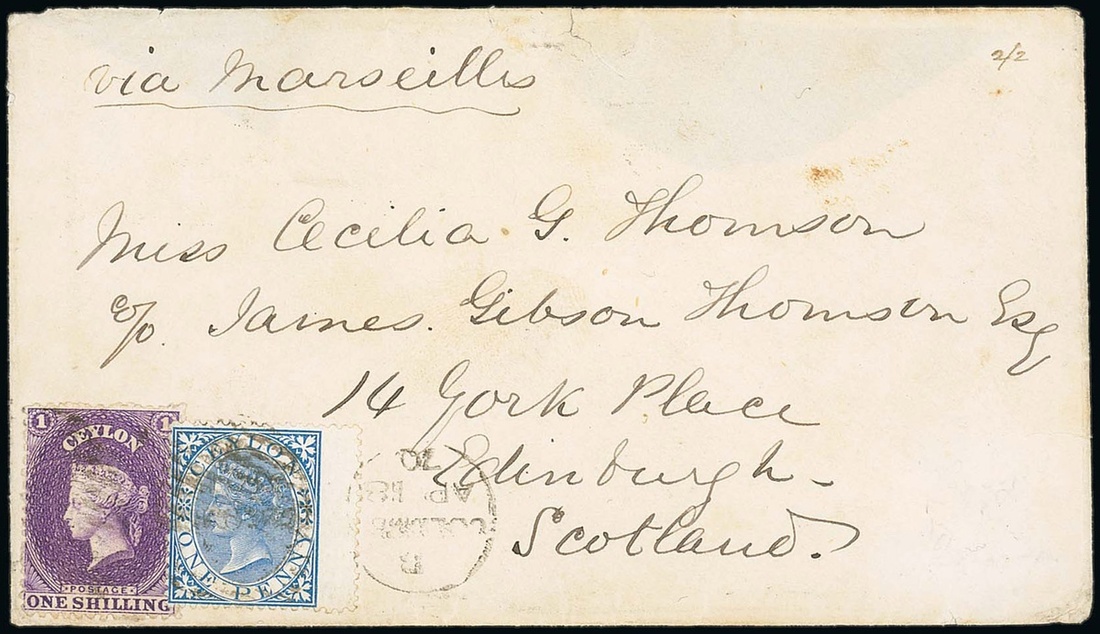 via Marseilles
2/2
Miss Cecilia G. Thomson
c/o James Gibson Thomson Esq
14 York Place
Edinburgh
Scotland.
1 1
CEYLON
POSTAGE
ONE SHILLING
CEYLON
ONE PENNY
70
AP 18
B